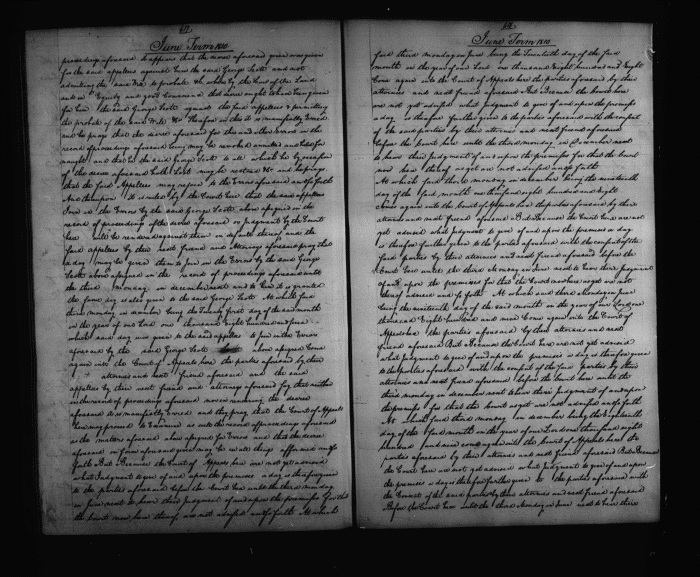 June Term 1810
proceedings aforesaid to appears that the decree aforesaid given was given
for the said appellees against him the said George Scott and not
admitting the said Will to probate &c whereby the Law of the Land
and in Equity and good Conscience that decree ought to have been given
for him the said George Scott against the said appellees & permitting
the probate of the said Will &c Therefore in this it is manifestly Erred
and he prays that the decree aforesaid for this and other Errors in the
record of proceedings aforesaid being may be revoked annulled and held for
naught and that he the said George Scott to all which he by occasion
of the decree aforesaid hath Lost may be restored &c and he prays
that the said Appellees may rejoin to the Errors aforesaid and so forth
And thereupon It is ruled by the Court here that the said appellees
Join in the Errors by the said George Scott above assigned in the
record of proceedings of the decree aforesaid or Judgment by the Court
here will be rendered against them in default thereof and the
said appellees by their next friend and Attorney aforesaid pray that
a day may be given them to join in the Errors by the said George
Scott above assigned in the record of proceedings aforesaid until
the third Monday in december next and to him it is granted
the same day is also given to the said George Scott At which said
third monday in december being the Twenty first day of the said month
in the year of our Lord one thousand Eight hundred and
which said day was given to the said appellees to Join in the Errors
aforesaid by the said George Scott above assigned Come
again into the Court of Appeals here the parties aforesaid by their
attornies and next friend aforesaid and the said
appellees by their next friend and attorney aforesaid say that neither
in the record of proceedings aforesaid nor in rendering the decree
aforesaid it is manifestly Erred and they pray that the Court of Appeals
here may proceed to Examine as into the record of proceedings aforesaid
as the matters aforesaid above assigned for Errors and that the decree
aforesaid in form aforesaid given may be in all things affirmed and so
forth But Because the Court of Appeals here are not yet advised
what Judgment to give of and upon the premises a day is therefore given
to the parties aforesaid before the Court here until the third monday
in June next to hear their Judgment of and upon the premises for that
the Court now here thereof are not advised and so forth At which
June Term 1810
said third monday in June being the Twentieth day of the said
month in the year of our Lord one thousand Eight hundred and Eight
Come again into the Court of Appeals here the parties aforesaid by their
attornies and next friend aforesaid But Because the Court here
are not yet advised what Judgment to give of and upon the premises
a day is therefore further given to the parties aforesaid with the consent
of the said parties by their attornies and next friend aforesaid
before the Court here until the third monday in December next
to hear their Judgment of and upon the premises for that the Court
now here thereof are not advised and so forth
At which said third monday in december being the nineteenth
day of the said month one thousand eight hundred and eight
Come again into the Court of Appeals here the parties aforesaid by their
attornies and next friend aforesaid But Because the Court here are not
yet advised what Judgment to give of and upon the premises a day
is therefore further given to the parties aforesaid with the consent of the
said parties by their attornies and next friend aforesaid before the
Court here until the third monday in June next to hear their Judgment
of and upon the premises for that the Court now here thereof are not
advised and so forth At which said third Monday in June
being the nineteenth day of the said month in the year of our Lord one
thousand Eight hundred and nine Come again into the Court of
Appeals here the parties aforesaid by their attornies and next
friend aforesaid But Because the Court here are not yet advised
what Judgment to give of and upon the premises a day is therefore given
to the parties aforesaid with the consent of the said parties by their
attornies and next friend aforesaid before the Court here until the
third monday in december next to hear their Judgment of and upon
the premises for that the Court are not advised and so forth
At which said third monday in december being the Eighteenth
day of the said month in the year of our Lord one thousand eight
hundred and nine Come again into the Court of Appeals here the
parties aforesaid by their attornies and next friend aforesaid But Because
the Court here are not yet advised what Judgment to give of and upon
the premises a day is therefore further given to the parties aforesaid with
the Consent of the said parties by their attornies and next friend aforesaid
Before the Court here until the third Monday in June next to hear their